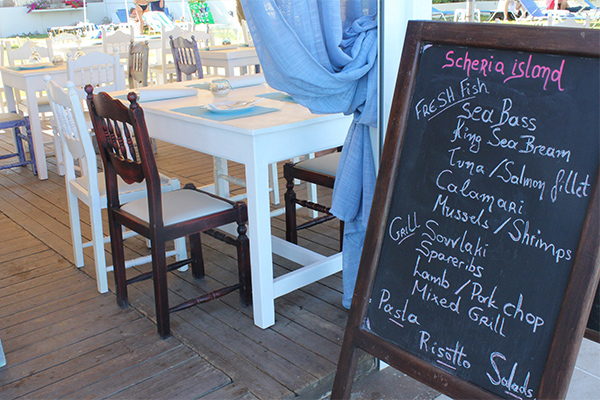 Scheria island
FRESH Fish
Sea Bass
King Sea Bream
Tuna/Salmon fillet
Calamari
Mussels/Shrimps
GRILL Sovlaki
Spareribs
Lamb/Pork chop
Mixed Grill
Pasta
Risotto
Salads